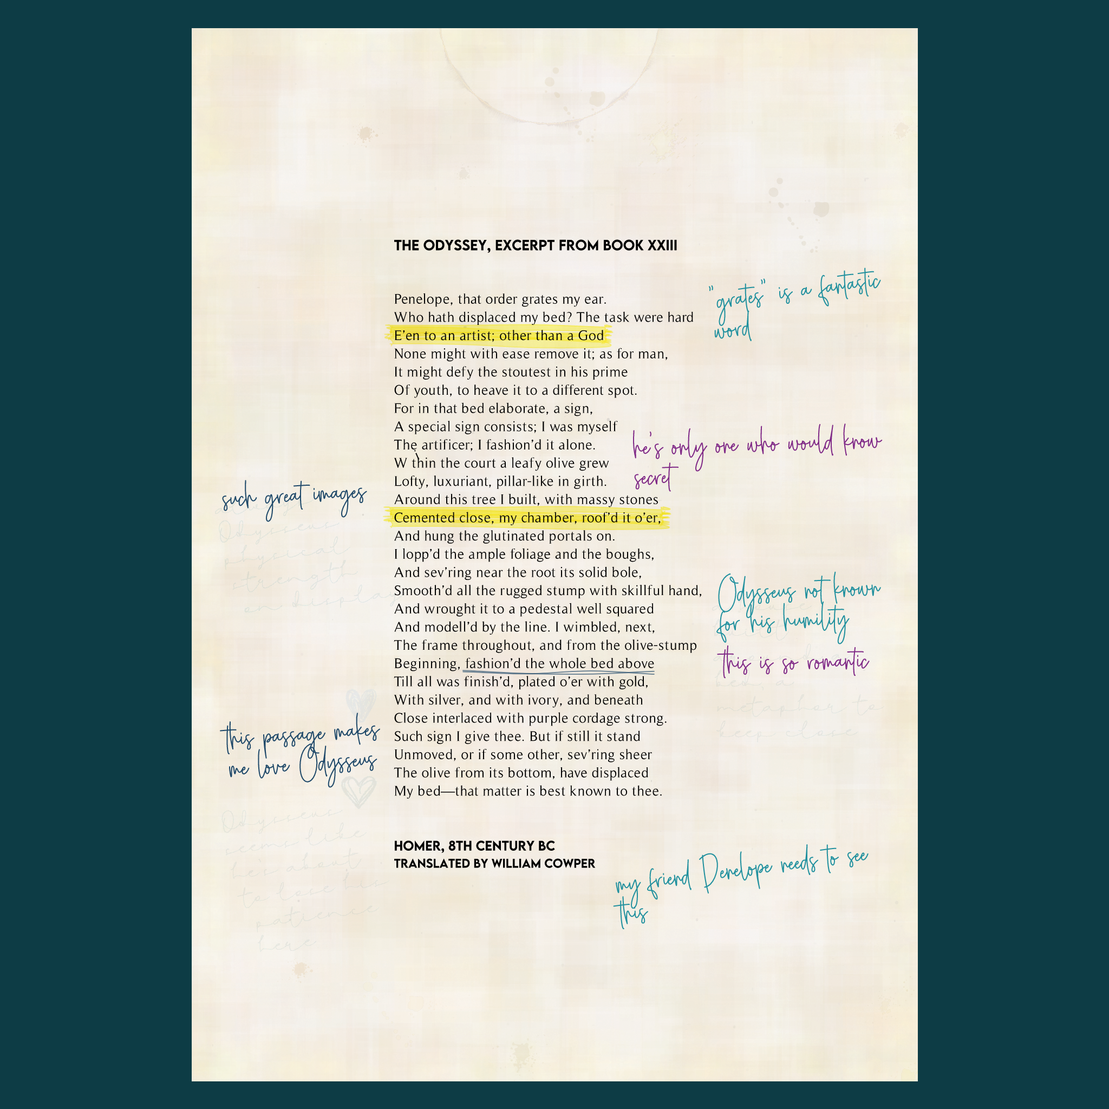 THE ODYSSEY, EXCERPT FROM BOOK XXIII
"grates" is a fantastic
word
Penelope, that order grates my ear.
Who hath displaced my bed? The task were hard
E'en to an artist; other than a God
None might with ease remove it; as for man,
It might defy the stoutest in his prime
Of youth, to heave it to a different spot.
For in that bed elaborate, a sign,
A special sign consists; I was myself
The artificer; I fashion'd it alone.
he's only one who would know
secret
W thin the court a leafy olive grew
Lofty, luxuriant, pillar-like in girth.
such great images
Around this tree I built, with massy stones
Cemented close, my chamber, roof'd it o'er,
And hung the glutinated portals on.
I lopp'd the ample foliage and the boughs,
And sev'ring near the root its solid bole,
Smooth'd all the rugged stump with skillful hand,
Odysseus not known
for his humility
And wrought it to a pedestal well squared
And modell'd by the line. I wimbled, next,
The frame throughout, and from the olive-stump
this is so romantic
Beginning, fashion'd the whole bed above
Till all was finish'd, plated o'er with gold,
With silver, and with ivory, and beneath
Close interlaced with purple cordage strong.
this passage makes
me love Odysseus
Such sign I give thee. But if still it stand
Unmoved, or if some other, sev'ring sheer
The olive from its bottom, have displaced
My bed—that matter is best known to thee.
HOMER, 8TH CENTURY BC
TRANSLATED BY WILLIAM COWPER
my friend Penelope needs to see
this
metaphor to
keep close
Odysseus
seems like